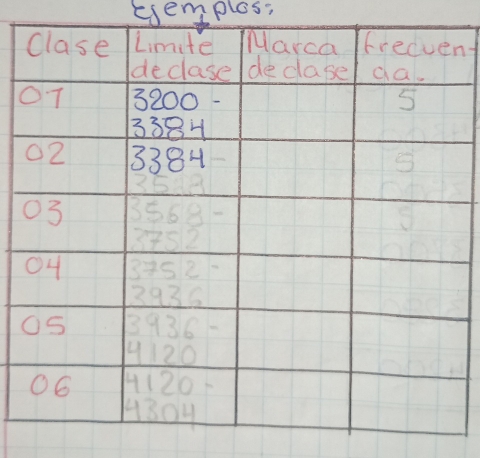 Ejemplos:
Clase Limite de clase Marca de clase Frecuencia.
01 3200 - 3384 5
02 3384 - 3568 5
03 3568 - 3752 5
04 3752 - 3936
05 3936 - 4120
06 4120 - 4304